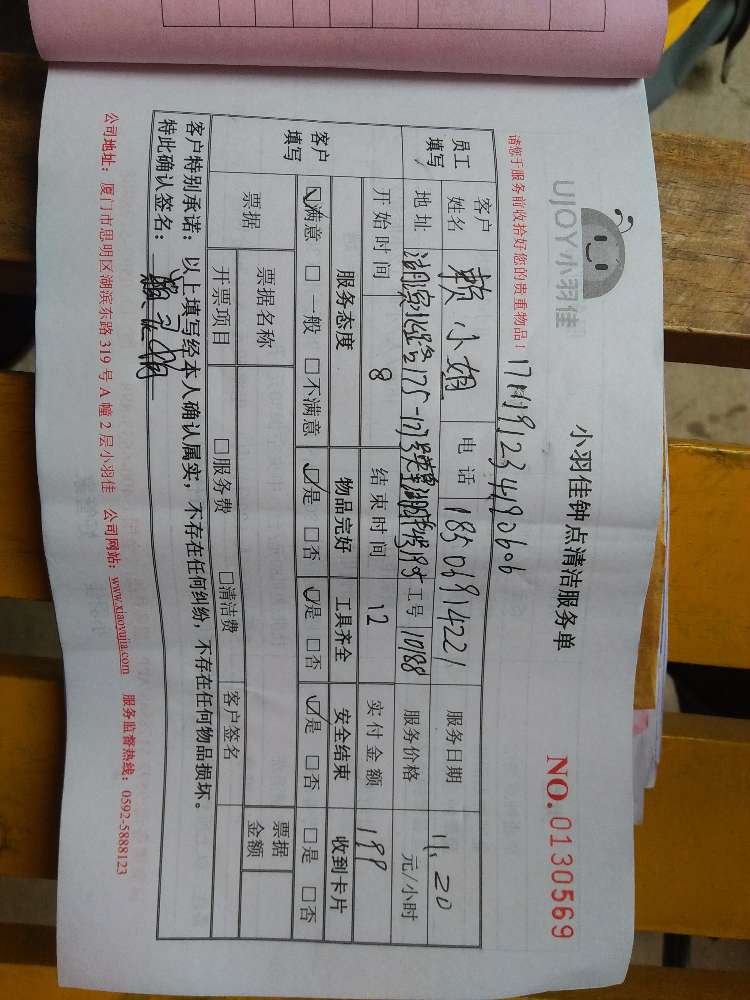 UJOY小羽佳
小羽佳钟点清洁服务单
NO.0130569
请您于服务前收拾好您的贵重物品!
员工填写
客户姓名 赖小姐 电话 18506914221 服务日期 11.20
地址 工号 10188 服务价格 元/小时
开始时间 8 结束时间 12 实付金额 199
客户填写
服务态度 物品完好 工具齐全 安全结束 收到卡片
☑满意 □一般 □不满意 ☑是 □否 ☑是 □否 ☑是 □否 □是 □否
票据 票据名称 客户签名 票据金额
开票项目 □服务费 □清洁费
客户特别承诺:以上填写经本人确认属实,不存在任何纠纷,不存在任何物品损坏。
特此确认签名:
公司地址:厦门市思明区湖滨东路319号A幢2层小羽佳 公司网站:www.xiaoyujia.com 服务监督热线:0592-5888123